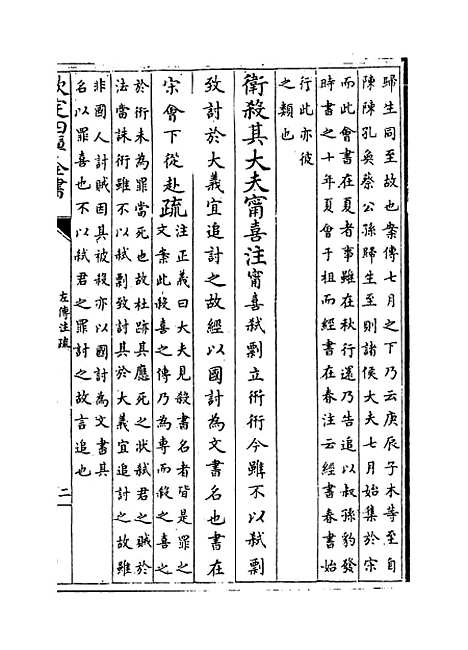 歸生同至故也案傳七月之下乃云庚辰子木等至自
陳陳孔奐蔡公孫歸生至則諸侯大夫七月始集於宋
而此會書在夏者事雖在秋行還乃告追以叔孫豹發
時書之十年夏會于柤而經書在春注云經書春書始
行此亦彼
之類也
衛殺其大夫甯喜注甯喜弒剽立衎衎今雖不以弒剽
致討於大義宜追討之故經以國討為文書名也書在
宋會下從赴疏
注正義曰大夫見殺書名者皆是罪之
文案此殺喜之傳乃為專而殺之喜之
於衎未為罪當死也故杜跡其應死之狀弒君之賊於
法當誅衎雖不以弒剽致討其於大義宜追討之故雖
非國人討賊因其被殺亦以國討為文書其
名以罪喜也不以弒君之罪討之故言追也
欽定四庫全書
左傳注疏
二